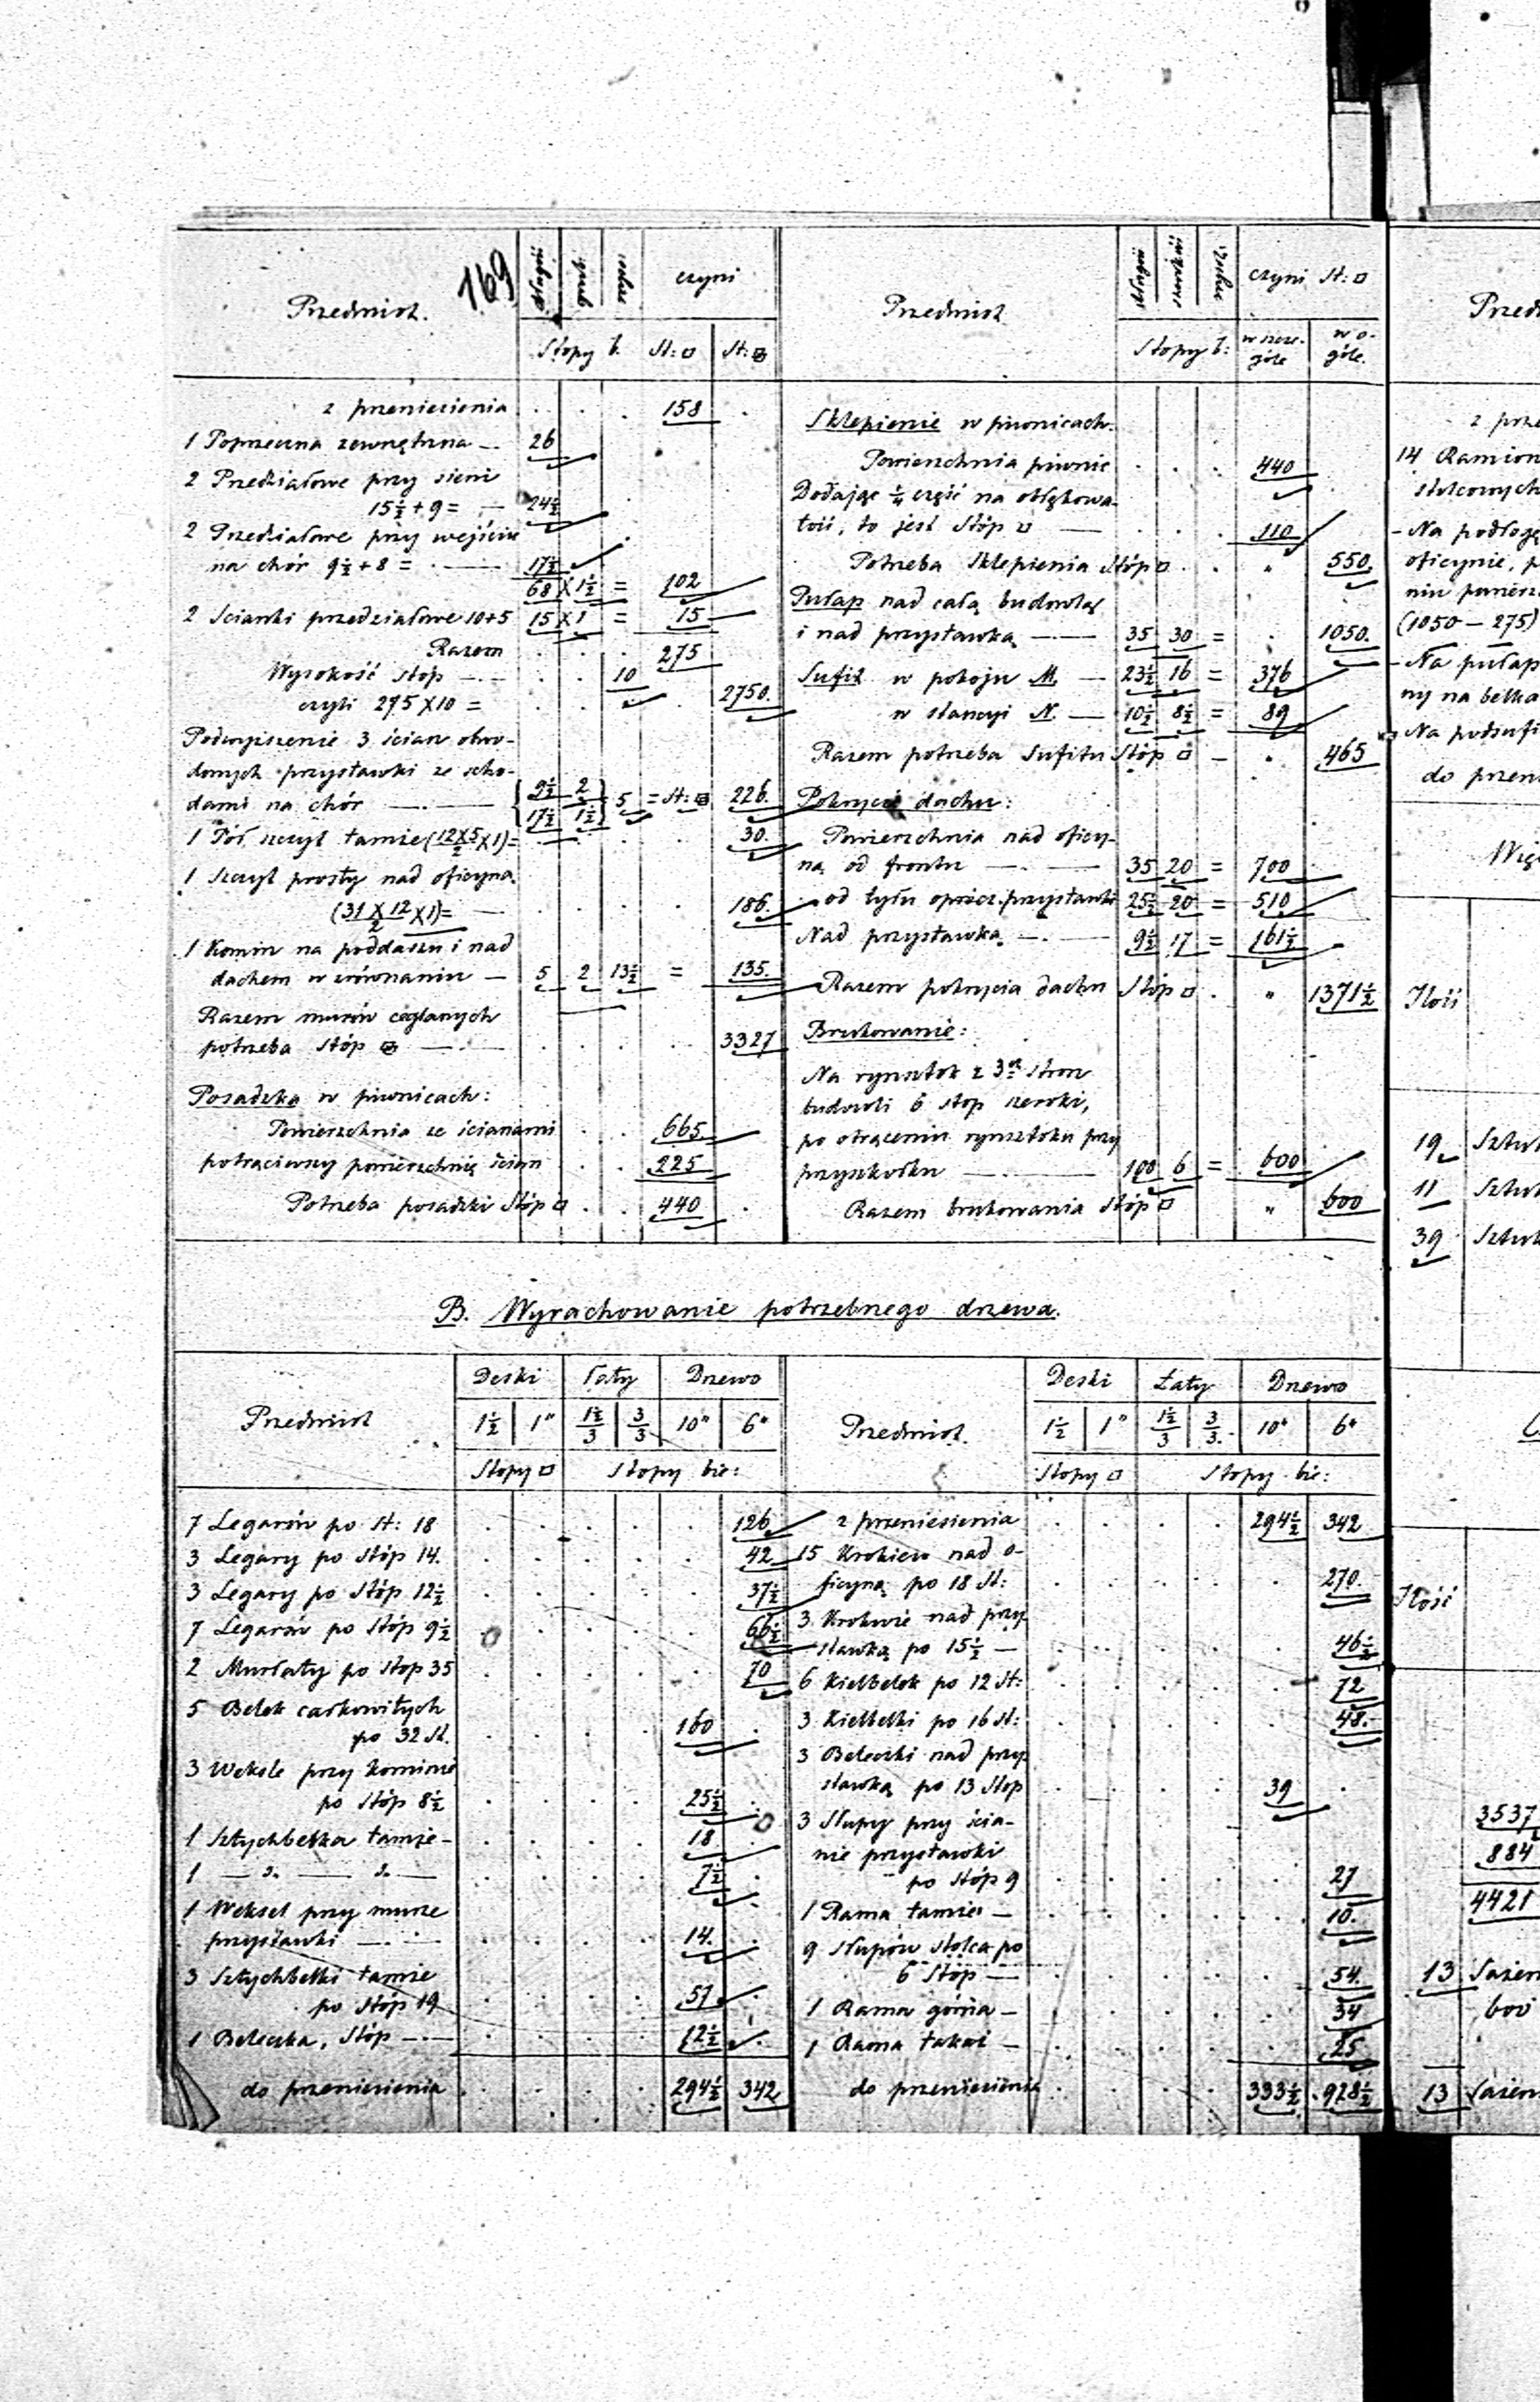 169
Przedmiot.
długość
grubość
wysok.
czyni
Stopy b.
St: □
St: ⊠
z przeniesienia . . . 158 .
1 Poprzeczna zewnętrzna — 26
2 Przedziałowe przy sieni
15½ + 9 = — 24½
2 Przedziałowe przy wejściu
na chór 9½ + 8 = — 17½
68 × 1½ = 102
2 Scianki przedziałowe 10+5 15 × 1 = 15
Razem . . . 275
Wysokość stóp — . . 10
czyli 275 × 10 = . . . 2750.
Podwyższenie 3 ścian obwo-
dowych przystawki ze scho-
dami na chór — { 9½ 2 } 5 = St: ⊠ 226.
17½ 1½
1 Pół szczyt tamże (12×5/2 ×1) = 30.
1 Szczyt prosty nad oficyną
(31 × 12/2 ×1) = — 186.
1 Komin na poddaszu i nad
dachem w zrównaniu — 5 2 13½ = 135.
Razem murów ceglanych
potrzeba Stóp ⊠ — 3327
Posadzka w piwnicach:
Powierzchnia ze ścianami . . 665.
potrąciwszy powierzchnię ścian . . 225
Potrzeba posadzki Stóp □ . . 440 .
Przedmiot
długość
szerokość
czyni St: □
Stopy b:
w szcze-
góle
w o-
góle.
Sklepienie w piwnicach.
Powierzchnia piwnic . . . 440
Dodając ¼ część na obłąkowa-
tość, to jest Stóp □ — . . . 110
Potrzeba Sklepienia Stóp □ . . " 550.
Pułap nad całą budowlą
i nad przystawką — 35 30 = . 1050.
Sufit w pokoju M. — 23½ 16 = 376
w stancyi N. — 10½ 8½ = 89
Razem potrzeba Sufitu Stóp □ — " 465
Pokrycie dachu:
Powierzchnia nad oficy-
ną od frontu — 35 20 = 700
od tyłu oprócz przystawki 25½ 20 = 510
Nad przystawką — 9½ 17 = 161½
Razem pokrycia dachu Stóp □ . " 1371½
Brukowanie:
Na rynsztok z 3ch stron
budowli 6 stop szeroki,
po otrąceniu rynsztoku przy
przyszkółku — 100 6 = 600
Razem brukowania Stóp □ " 600
B. Wyrachowanie potrzebnego drzewa.
Przedmiot
Deski
Łaty
Drzewo
1½ 1" 1½/3 3/3 10" 6"
Stopy □
Stopy bie:
7 Legarów po St: 18 . . . . . 126
3 Legary po Stóp 14. . . . . . 42
3 Legary po Stóp 12½ . . . . . 37½
7 Legarów po Stóp 9½ . . . . 66½
2 Murłaty po Stop 35 . . . . . 70
5 Belek całkowitych
po 32 St. . . . . 160 .
3 Weksle przy kominie
po Stóp 8½ . . . . 25½ .
1 Sztychbelka tamże — . . . . 18 .
1 — d. — d. — . . . . 7½ .
1 Weksel przy murze
przystawki — . . . . 14. .
3 Sztychbelki tamże
po Stóp 19 . . . . 57
1 Beleczka, Stóp — . . . . 12½ .
do przeniesienia . . . . 294½ 342
Przedmiot.
Deski
Łaty
Drzewo
1½ 1" 1½/3 3/3. 10" 6"
Stopy □
Stopy bie:
z przeniesienia . . . . 294½ 342
15 Krokiew nad o-
ficyną po 18 St: 270.
3 Krokwie nad przy-
stawką po 15½ — 46½
6 Kielbelek po 12 St: 72
3 Kielbelki po 16 St: 48.
3 Beleczki nad przy-
stawką po 13 Stop . . . . 39 .
3 Słupy przy ścia-
nie przystawki
po Stóp 9 . . . . . 27
1 Rama tamże — 10.
9 Słupów stolca po
6 Stóp — 54.
1 Rama górna — 34
1 Rama takaż — 25
do przeniesienia . . . . 333½ 928½
14 Ramion
stolcowych
- Na podłogę
oficynie,
(1050 — 275)
- Na pułap
ny na belka
- Na podsufi
do przen
Ilość
19
11
39
Ilość
3537
884
4421
13 Sążen
600
13 Sążen